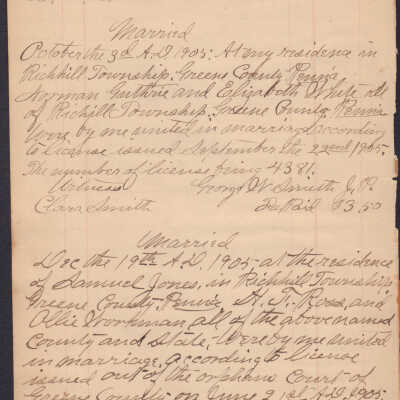 Married
October the 3d A.D. 1905: At my residence in
Richhill Township. Greene County Penna
Norman Guthrie and Elizabeth White all
of Richhill Township. Greene County. Penna
Were by me united in marriage according
to license issued September the 22nd 1905.
The number of license being 4381.
Witness George W Smith J. P.
Clara Smith Paid $3.50
Married
Dec the 19th A.D. 1905- at the residence
of Samuel Jones, in Richhill Township
Greene County Penna, H. Ross, and
Ollie Workman all of the above named
County and State, Were by me united
in marriage, according to license
issued out of the orphans Court of
Greene County on June 21st A.D. 1905